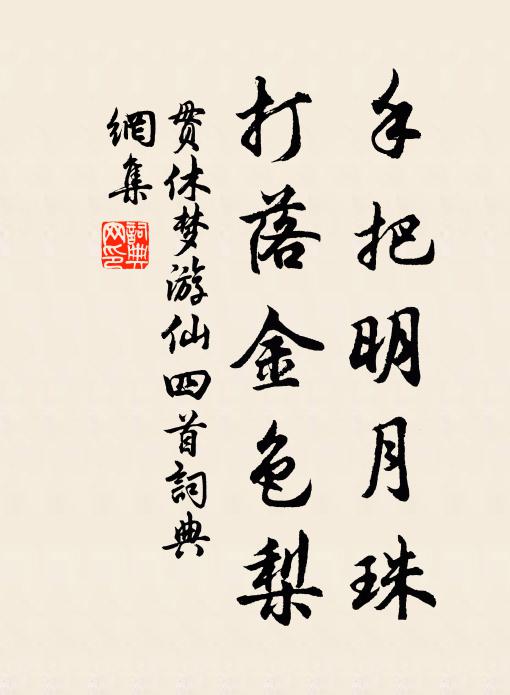 手把明月珠
打落金色梨
贯休梦游仙四首詞典
網集
詞典网印